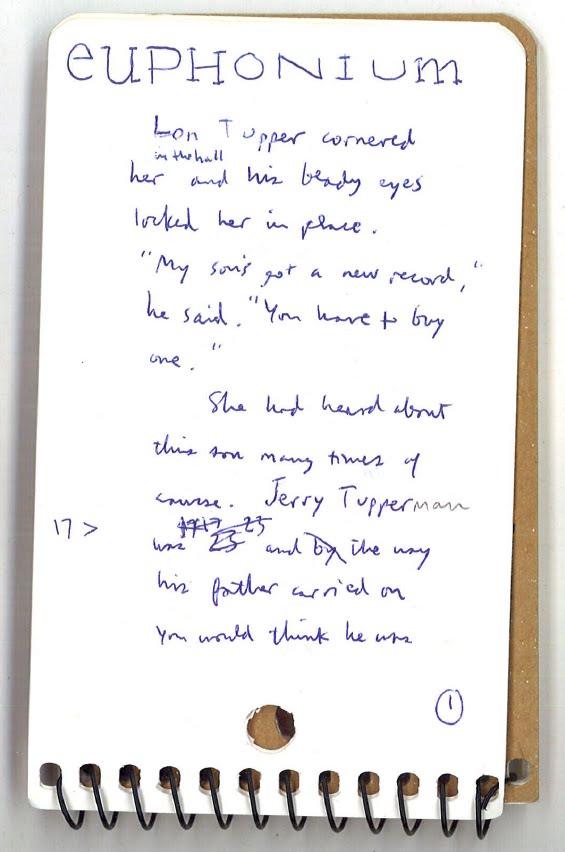 EUPHONIUM
Lon Tupper cornered
in the hall
her and his beady eyes
locked her in place.
"My son's got a new record,"
he said. "You have to buy
one."
She had heard about
this son many times of
course. Jerry Tupperman
17 >
was and the way
his father carried on
you would think he was
1